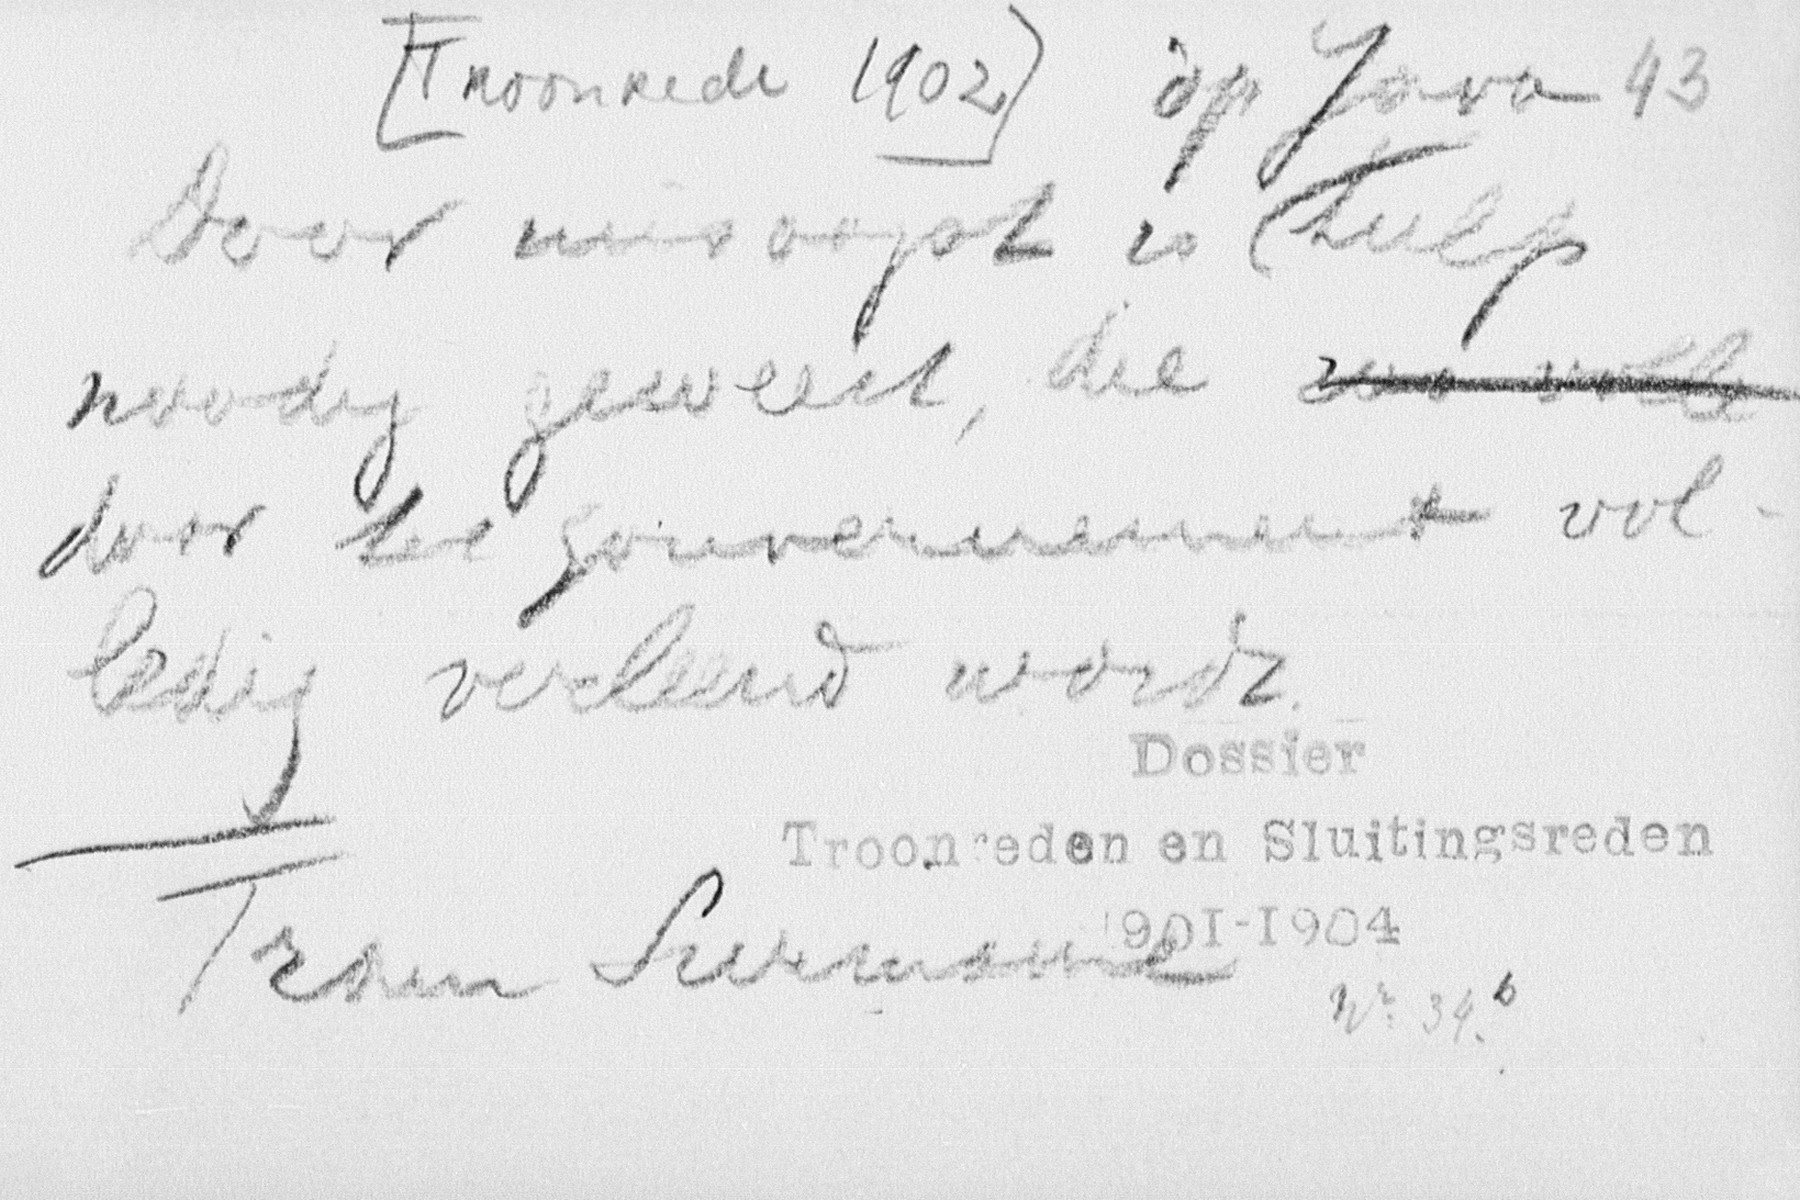 [Troonrede 1902] op Java 43
Door misoogst is hulp
noodig geweest, die zoo voll
door het gouvernement vol-
ledig verleend wordt.
Dossier
Troonreden en Sluitingsreden
1901-1904
Tram Suriname
Nr. 34.b